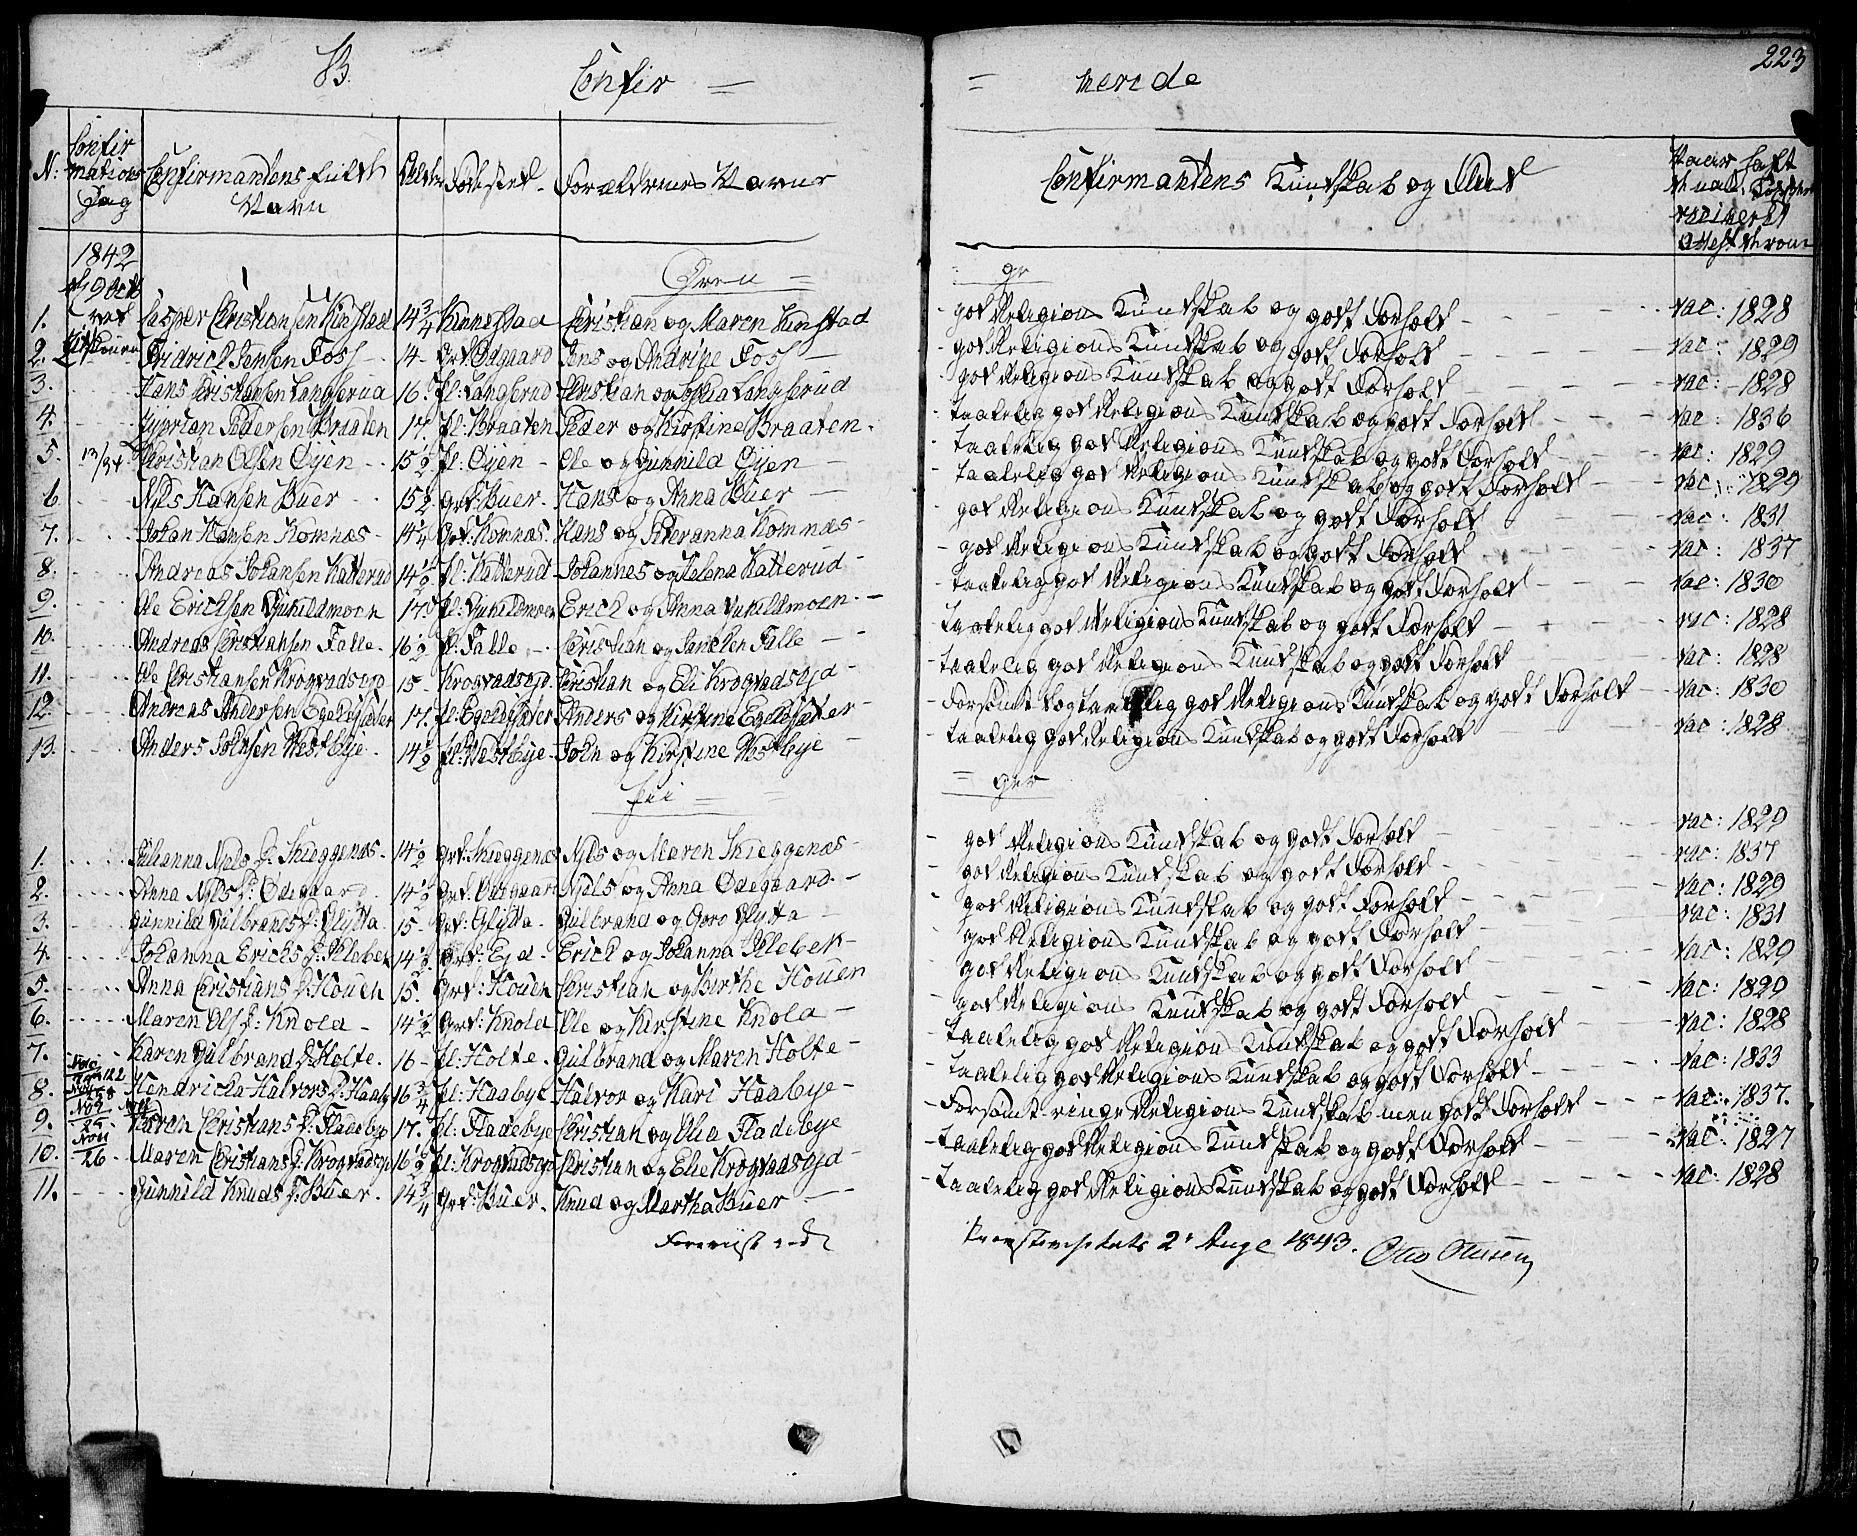 B. Confir = = merede 223
N: Confirmations Dag Confirmandens fulde Navn Alder Fødested Forældrenes Navne Confirmandens Kundskab og Flid
1842
9 Octb
Drenge
1. Casper Christiansen Kinstad 14 3/4 Kinnestad Christian og Maren Kinstad - god Religions Kundskab og godt Forhold - vac: 1828
2. Fridrich Jensen Foss 14 - Grd: Ødgaard Jens og Andrine Foss - god Religions Kundskab og godt Forhold - vac: 1829
3. Hans Christiansen Langserud 16 pl: Langserud Christian og Sophia Langserud god Religions Kundskab og godt Forhold - vac: 1828
4. Cyprian Pedersen Braaten 17. pl: Braaten Peder og Kirstine Braaten. - taalelig god Religions Kundskab og godt Forhold - vac: 1836
5. 13/34 Christian Olsen Øyen 15 1/2 pl: Øyen - Ole og Gunnild Øyen - taalelig god Religions Kundskab og godt Forhold - vac: 1829
6. Nils Hansen Buer 15 1/2 Grd: Buer - Hans og Anna Buer - taalelig god Religions Kundskab og godt Forhold - vac: 1829
7. Johan Hansen Komnæs - 14 1/4 Grd: Komnæs. Hans og Peteranna Komnæs - god Religions Kundskab og godt Forhold - vac: 1831
8. Andreas Johansen Katterud 14 1/2 pl: Katterud - Johannes og Helena Katterud - god Religions Kundskab og godt Forhold - vac: 1837
9. Ole Erichsen Gukildmoen 17 pl: Gukildmoen Erich og Anna Gukildmoen. - taalelig god Religions Kundskab og godt Forhold - vac: 1830
10. Andreas Christiansen Falle. 16 1/2 pl: Falle - Christian og Falle - taalelig god Religions Kundskab og godt Forhold - vac: 1828
11. Ole Christiansen Krogvadsejd 15 - Krogvadsejd. Christian og Eli Krogvadsejd - taalelig god Religions Kundskab og godt Forhold - vac: 1828
12. Andreas Andersen Egeldsæter 17. pl: Egeldsæter Anders og Kirstine Egeldsæter - forsømt og taalelig god Religions Kundskab og godt Forhold - vac: 1830
13. Anders Johnsen Westbye - 14 1/2 pl: Westbye - John og Kirstine Westbye - taalelig god Religions Kundskab og godt Forhold - vac: 1828
Piger
1. Julianna Niels D: Skieggenæs - 14 1/2 Grd: Skieggenæs Niels og Maren Skieggenæs - god Religions Kundskab og godt Forhold - vac: 1829
2. Anna Niels D: Ødegaard - 14 1/2 Grd: Ødegaard Niels og Anna Ødegaard. - god Religions Kundskab og godt Forhold - vac: 1837
3. Gunnild Gulbrands D: Glytta 15 - Grd: Glytta - Gulbrand og Goro Glytta - god Religions Kundskab og godt Forhold - vac: 1829
4. Johanna Erichs D: Illebek 14 1/2 Grd: Ejd - Erich og Johanna Illebek - god Religions Kundskab og godt Forhold - vac: 1831
5. Anna Christians D: Houen 15. Grd: Houen Christian og Birthe Houen god Religions Kundskab og godt Forhold - vac: 1829
6. Maren Ols D: Knola - 14 1/2 Grd: Knola Ole og Kirstine Knola - god Religions Kundskab og godt Forhold - vac: 1829
7. Karen Gulbrand D: Holte. 16 - pl: Holte - Gulbrand og Maren Holte - taalelig god Religions Kundskab og godt Forhold - vac: 1828
8. Hendricka Halvors D: Haaby 16 3/4 pl: Haabye - Halvor og Kari Haabye - taalelig god Religions Kundskab og godt Forhold - vac: 1833
9. Karen Christians D: Fladebye 17. pl: Fladebye Christian og Olia Fladebye - forsømt - ringe Religions Kundskab men godt Forhold - vac: 1837.
10. 26 - Maren Christians D: Krogvadsejd 16 1/2 pl: Krogvadsejd Christian og Elie Krogvadsejd - taalelig god Religions Kundskab og godt Forhold - vac: 1827
11. Gunnild Knuds D: Buer. 14 3/4 Grd: Buer. Knud og Martha Buer - taalelig god Religions Kundskab og godt Forhold - vac: 1828
Foreviist ved 2. Aug 1843. Otto Ottesen